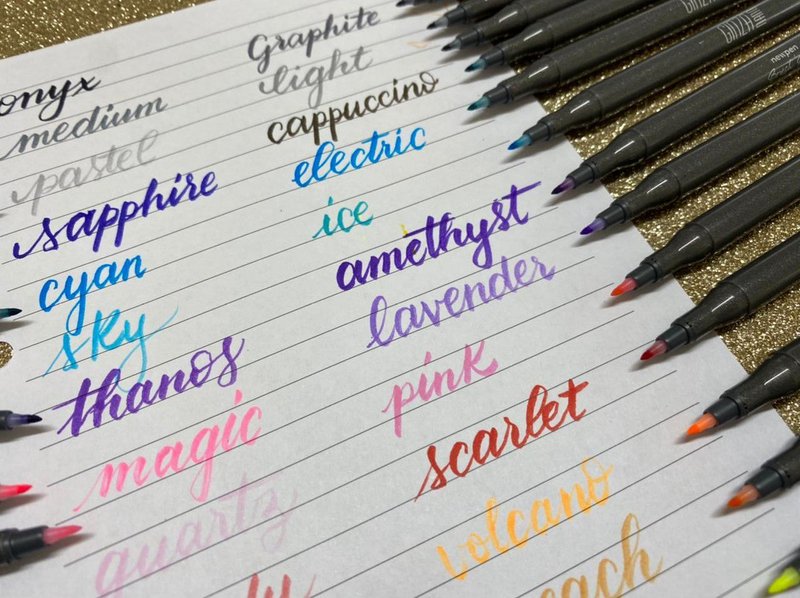 onyx
Graphite
medium
light
pastel
cappuccino
sapphire
electric
cyan
ice
sky
amethyst
thanos
lavender
magic
pink
quartz
scarlet
volcano
GINZA
GINZA
newpen